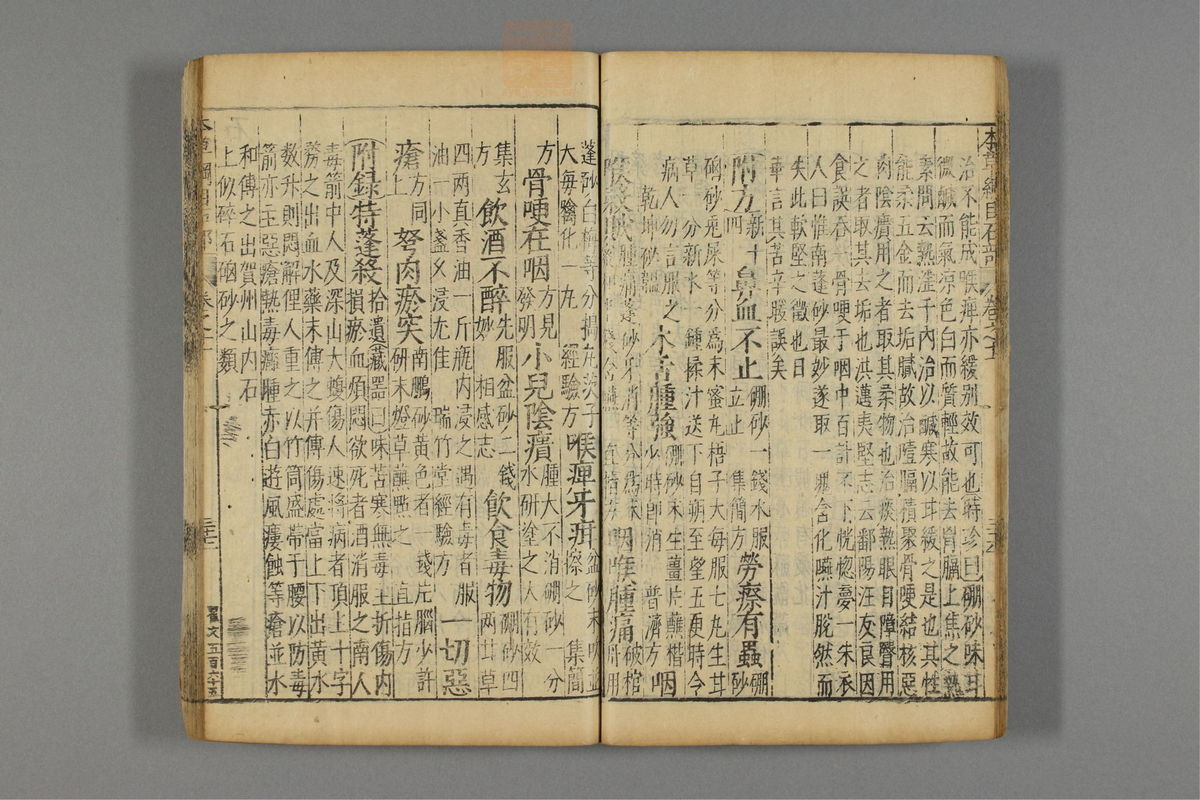 治不能成喉痺亦緩別效可也時珍曰硼砂味甘
微鹹而氣涼色白而質輕故能去胸膈上焦之熱
素問云熱淫于內治以鹹寒以甘緩之是也其性
能柔五金而去垢膩故治噎膈積聚骨哽結核惡
肉陰㿉用之者取其柔物也治痰熱眼目障瞖用
之者取其去垢也洪邁夷堅志云鄱陽汪友良因
食誤吞一骨哽于咽中百計不下恍惚夢一朱衣
人曰惟南蓬砂最妙遂取一塊含化嚥汁脫然而
失此軟堅之徵也日
華言其苦辛暖誤矣
附方新十四鼻血不止硼砂一錢水服立止集簡方勞瘵有蟲硼砂
硇砂兔屎等分為末蜜丸梧子大每服七丸生甘
草一分新水一鍾揉汁送下自朔至望五更時令
病人勿言服之乾坤秘韞木舌腫強硼砂末生薑片蘸楷少時即消普濟方咽
喉穀賊腫痛蓬砂牙消等分為末咽喉腫痛破棺丹用
蓬砂白梅等分搗丸芡子大每噙化一丸經驗方喉痺牙疳盆砂末吹並擦之集簡
方骨哽在咽方見發明小兒陰㿉腫大不消硼砂一分水研塗之大有效
集玄方飲酒不醉先服盆砂二錢妙相感志飲食毒物硼砂四兩甘草
四兩真香油一斤瓶內浸之遇有毒者服油一小盞久浸尤佳瑞竹堂經驗方一切惡
瘡上方同弩肉瘀突南鵬砂黃色者一錢片腦少許研末燈草蘸點之直指方
附錄特蓬殺拾遺藏器曰味苦寒無毒主折傷內損瘀血煩悶欲死者酒消服之南人
毒箭中人及深山大蝮傷人速將病者頂上十字
剺之出血水藥末傅之并傅傷處當上下出黃水
數升則悶解俚人重之以竹筒盛帶于腰以防毒
箭亦主惡瘡熱毒癰腫赤白遊風瘻蝕等瘡並水
和傅之出賀州山內石
上似碎石硇砂之類